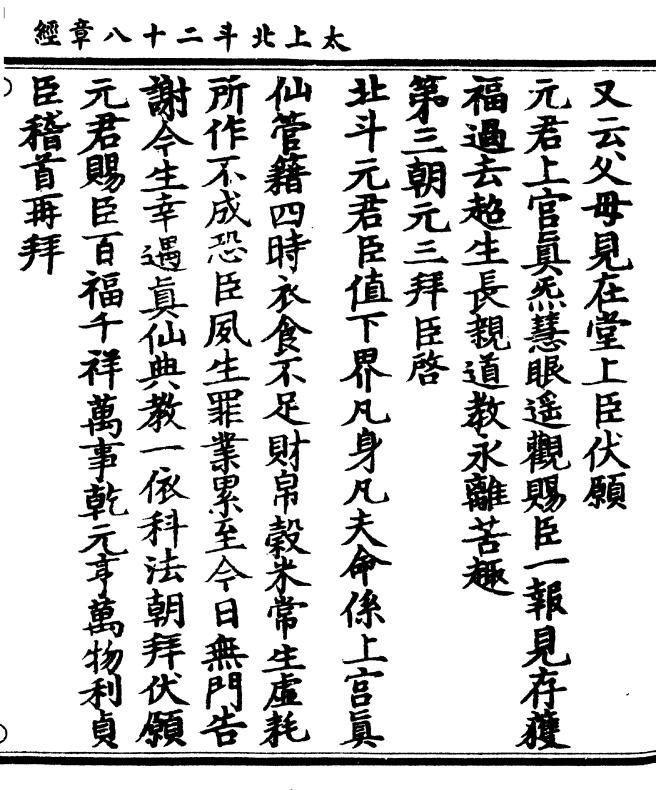 太上北斗二十八章經
又云父母見在堂上臣伏願
元君上官眞炁慧眼遥觀賜臣一報見存獲
福過去超生長親道教永離苦趣
第三朝元三拜臣啓
北斗元君臣值下界凡身凡夫命係上宫眞
仙管籍四時衣食不足財帛穀米常生虛耗
所作不成恐臣夙生罪業累至今日無門告
謝今生幸遇眞仙典教一依科法朝拜伏願
元君賜臣百福千祥萬事乾元亨萬物利貞
臣稽首再拜